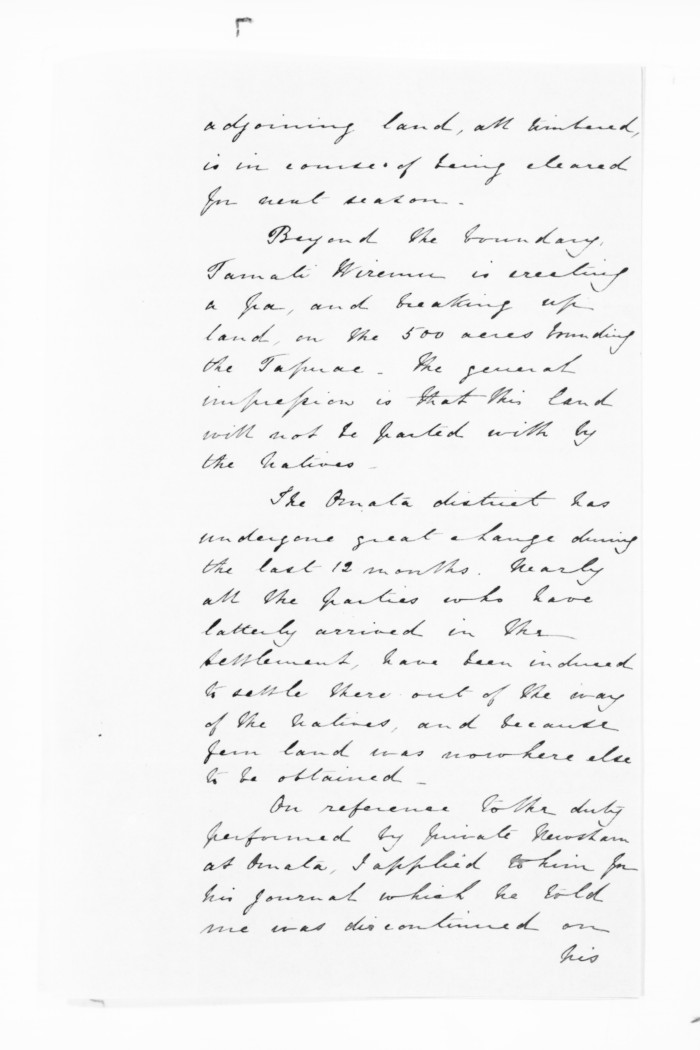 adjoining land, all timbered,
is in course of being cleared
for next season.
Beyond the boundary,
Tamati Wiremu is erecting
a pa, and breaking up
land, on the 500 acres bounding
the Tapuae. The general
impression is that this land
will not be parted with by
the Natives.
The Omata district has
undergone great change during
the last 12 months. Nearly
all the parties who have
latterly arrived in the
settlement, have been induced
to settle there out of the way
of the Natives, and because
fern land was nowhere else
to be obtained.
On reference to the duty
performed by private Newsham
at Omata, I applied to him for
his journal which he told
me was discontinued on
his